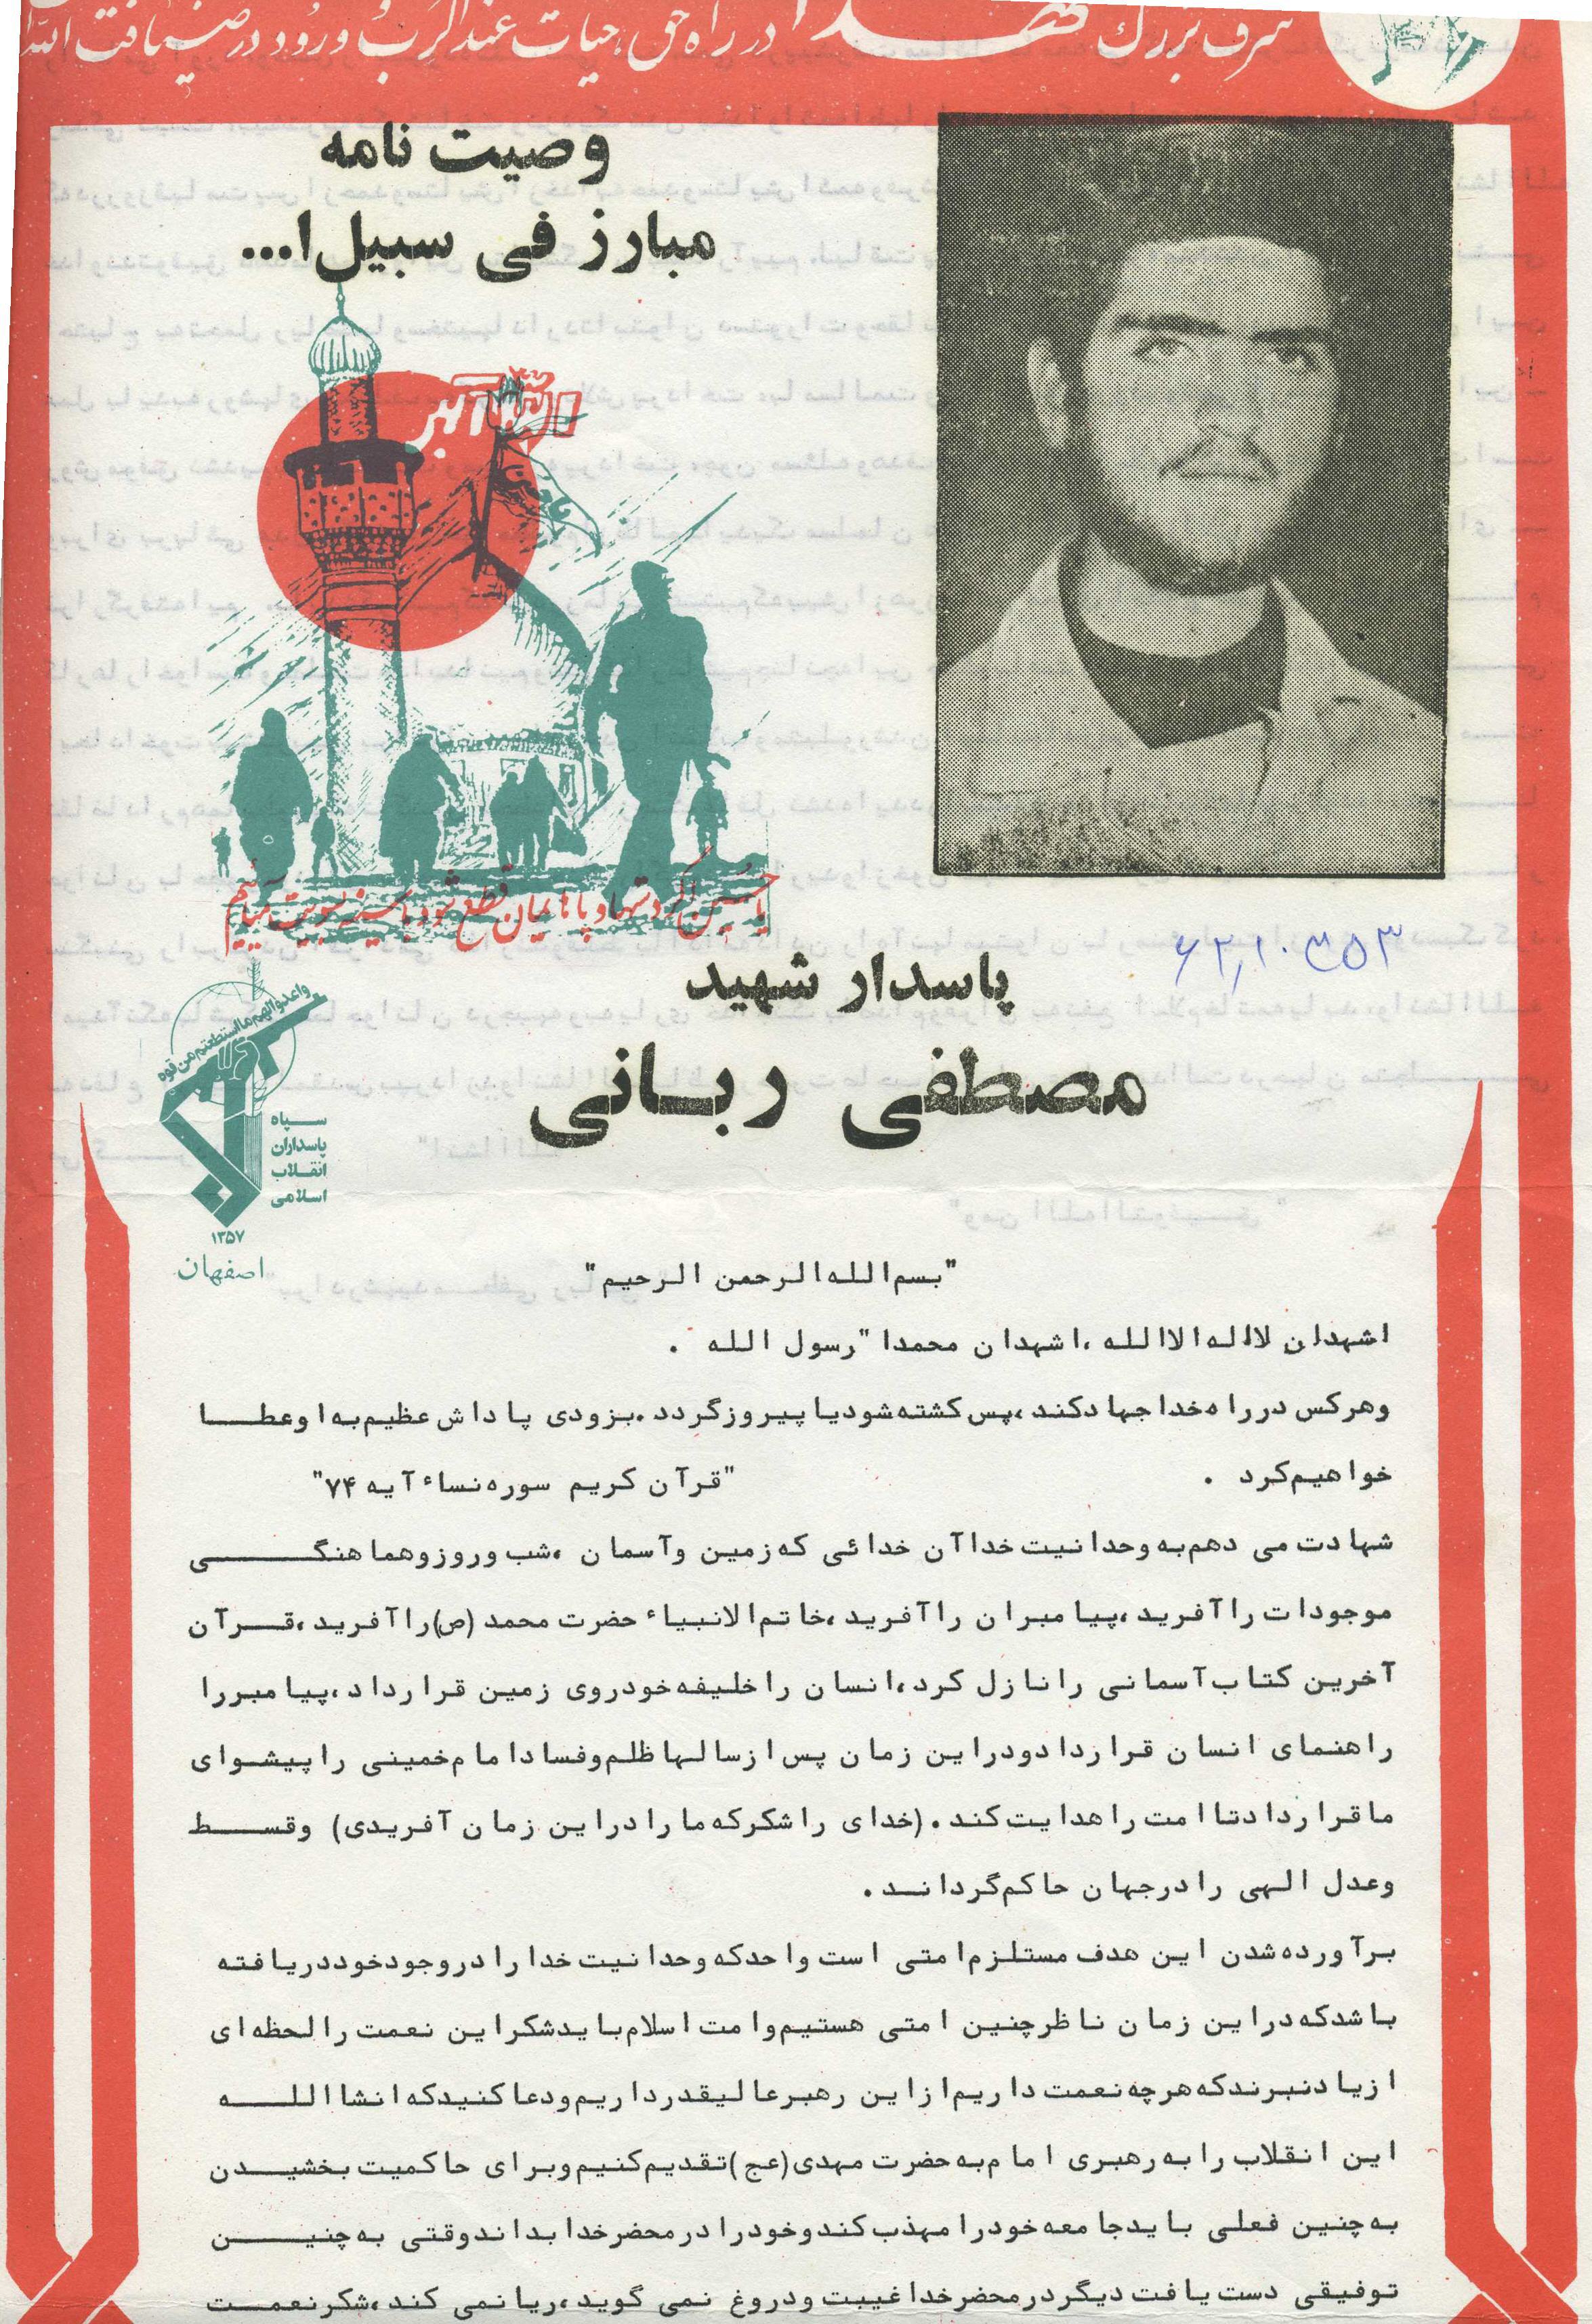 شرف بزرگ شهدا در راه حق، حیات عند الرب و ورود در ضیافت الله
وصیت نامه
مبارز فی سبیل ا...
الله اکبر
یا حسین اگر دستها و پاهایمان قطع شود با سینه بسویت میآئیم
۶۲,۱۰۳۵۳
پاسدار شهید
مصطفی ربانی
واعدوا لهم ما استطعتم من قوه
سپاه
پاسداران
انقلاب
اسلامی
۱۳۵۷
اصفهان
"بسم الله الرحمن الرحیم"
اشهدان لااله الاالله ،اشهدان محمدا "رسول الله .
وهرکس درراه خدا جهادکند ،پس کشته شودیا پیروزگردد .بزودی پاداش عظیم به اوعطا
خواهیم کرد .
"قرآن کریم سوره نساء آیه ۷۴"
شهادت می دهم به وحدانیت خداآن خدائی که زمین وآسمان ،شب وروزوهماهنگی
موجودات راآفرید ،پیامبران راآفرید ،خاتم الانبیاء حضرت محمد (ص)راآفرید ،قرآن
آخرین کتاب آسمانی رانازل کرد ،انسان راخلیفه خودروی زمین قرارداد ،پیامبررا
راهنمای انسان قراردادودراین زمان پس ازسالها ظلم وفساد امام خمینی راپیشوای
ماقراردادتاامت راهدایت کند . (خدای راشکرکه مارادراین زمان آفریدی) وقسط
وعدل الهی رادرجهان حاکم گرداند .
برآورده شدن این هدف مستلزم امتی است واحدکه وحدانیت خدارادروجودخوددریافته
باشدکه دراین زمان ناظرچنین امتی هستیم وامت اسلام بایدشکراین نعمت رالحظه ای
ازیادنبرندکه هرچه نعمت داریم ازاین رهبرعالیقدرداریم ودعاکنیدکه انشاالله
این انقلاب رابه رهبری امام به حضرت مهدی(عج)تقدیم کنیم وبرای حاکمیت بخشیدن
به چنین فعلی بایدجامعه خودرامهذب کندوخودرادرمحضرخدابداندوقتی به چنین
توفیقی دست یافت دیگردرمحضرخداغیبت ودروغ نمی گوید ،ریانمی کند ،شکرنعمت